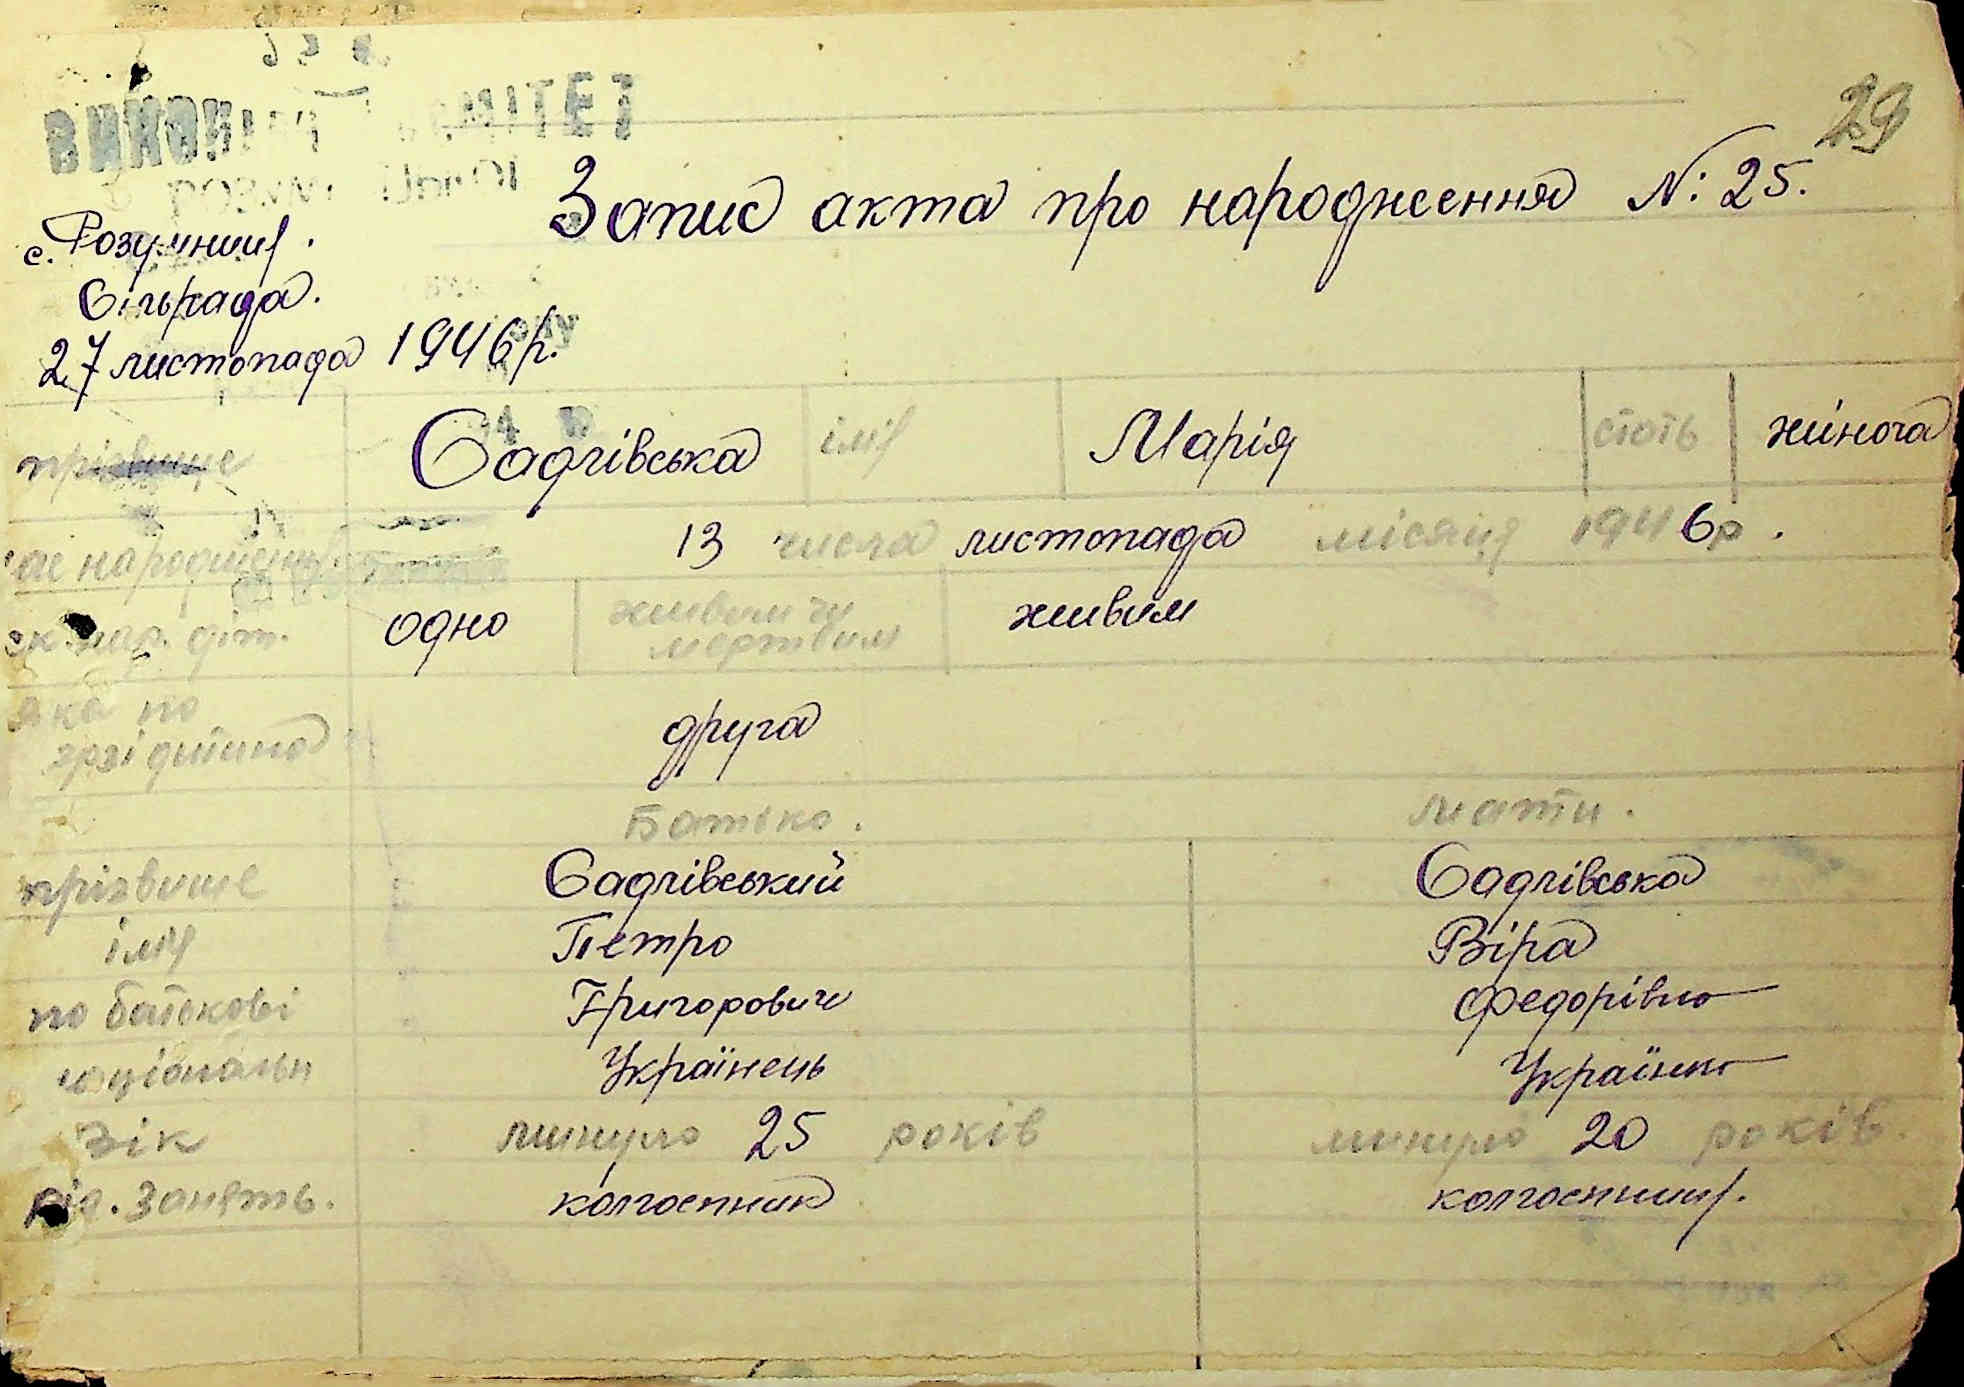 29
ВИКОН КОМІТЕТ
Запис акта про народження N: 25.
с. Розумниця.
Сільрада.
27 листопада 1946 р.
прізвище Садлівська ім'я Марія стать жіноча
час народження 13 числа листопада місяця 1946 р.
ск. нар. діт. одно живим чи мертвим живим
яка по
друга
Батько. мати.
прізвище Садлівський Садлівська
ім'я Петро Віра
по батькові Григорович Федорівна
національн Українець Українка
вік минуло 25 років минуло 20 років.
рід. занять. колгоспник колгоспниця.